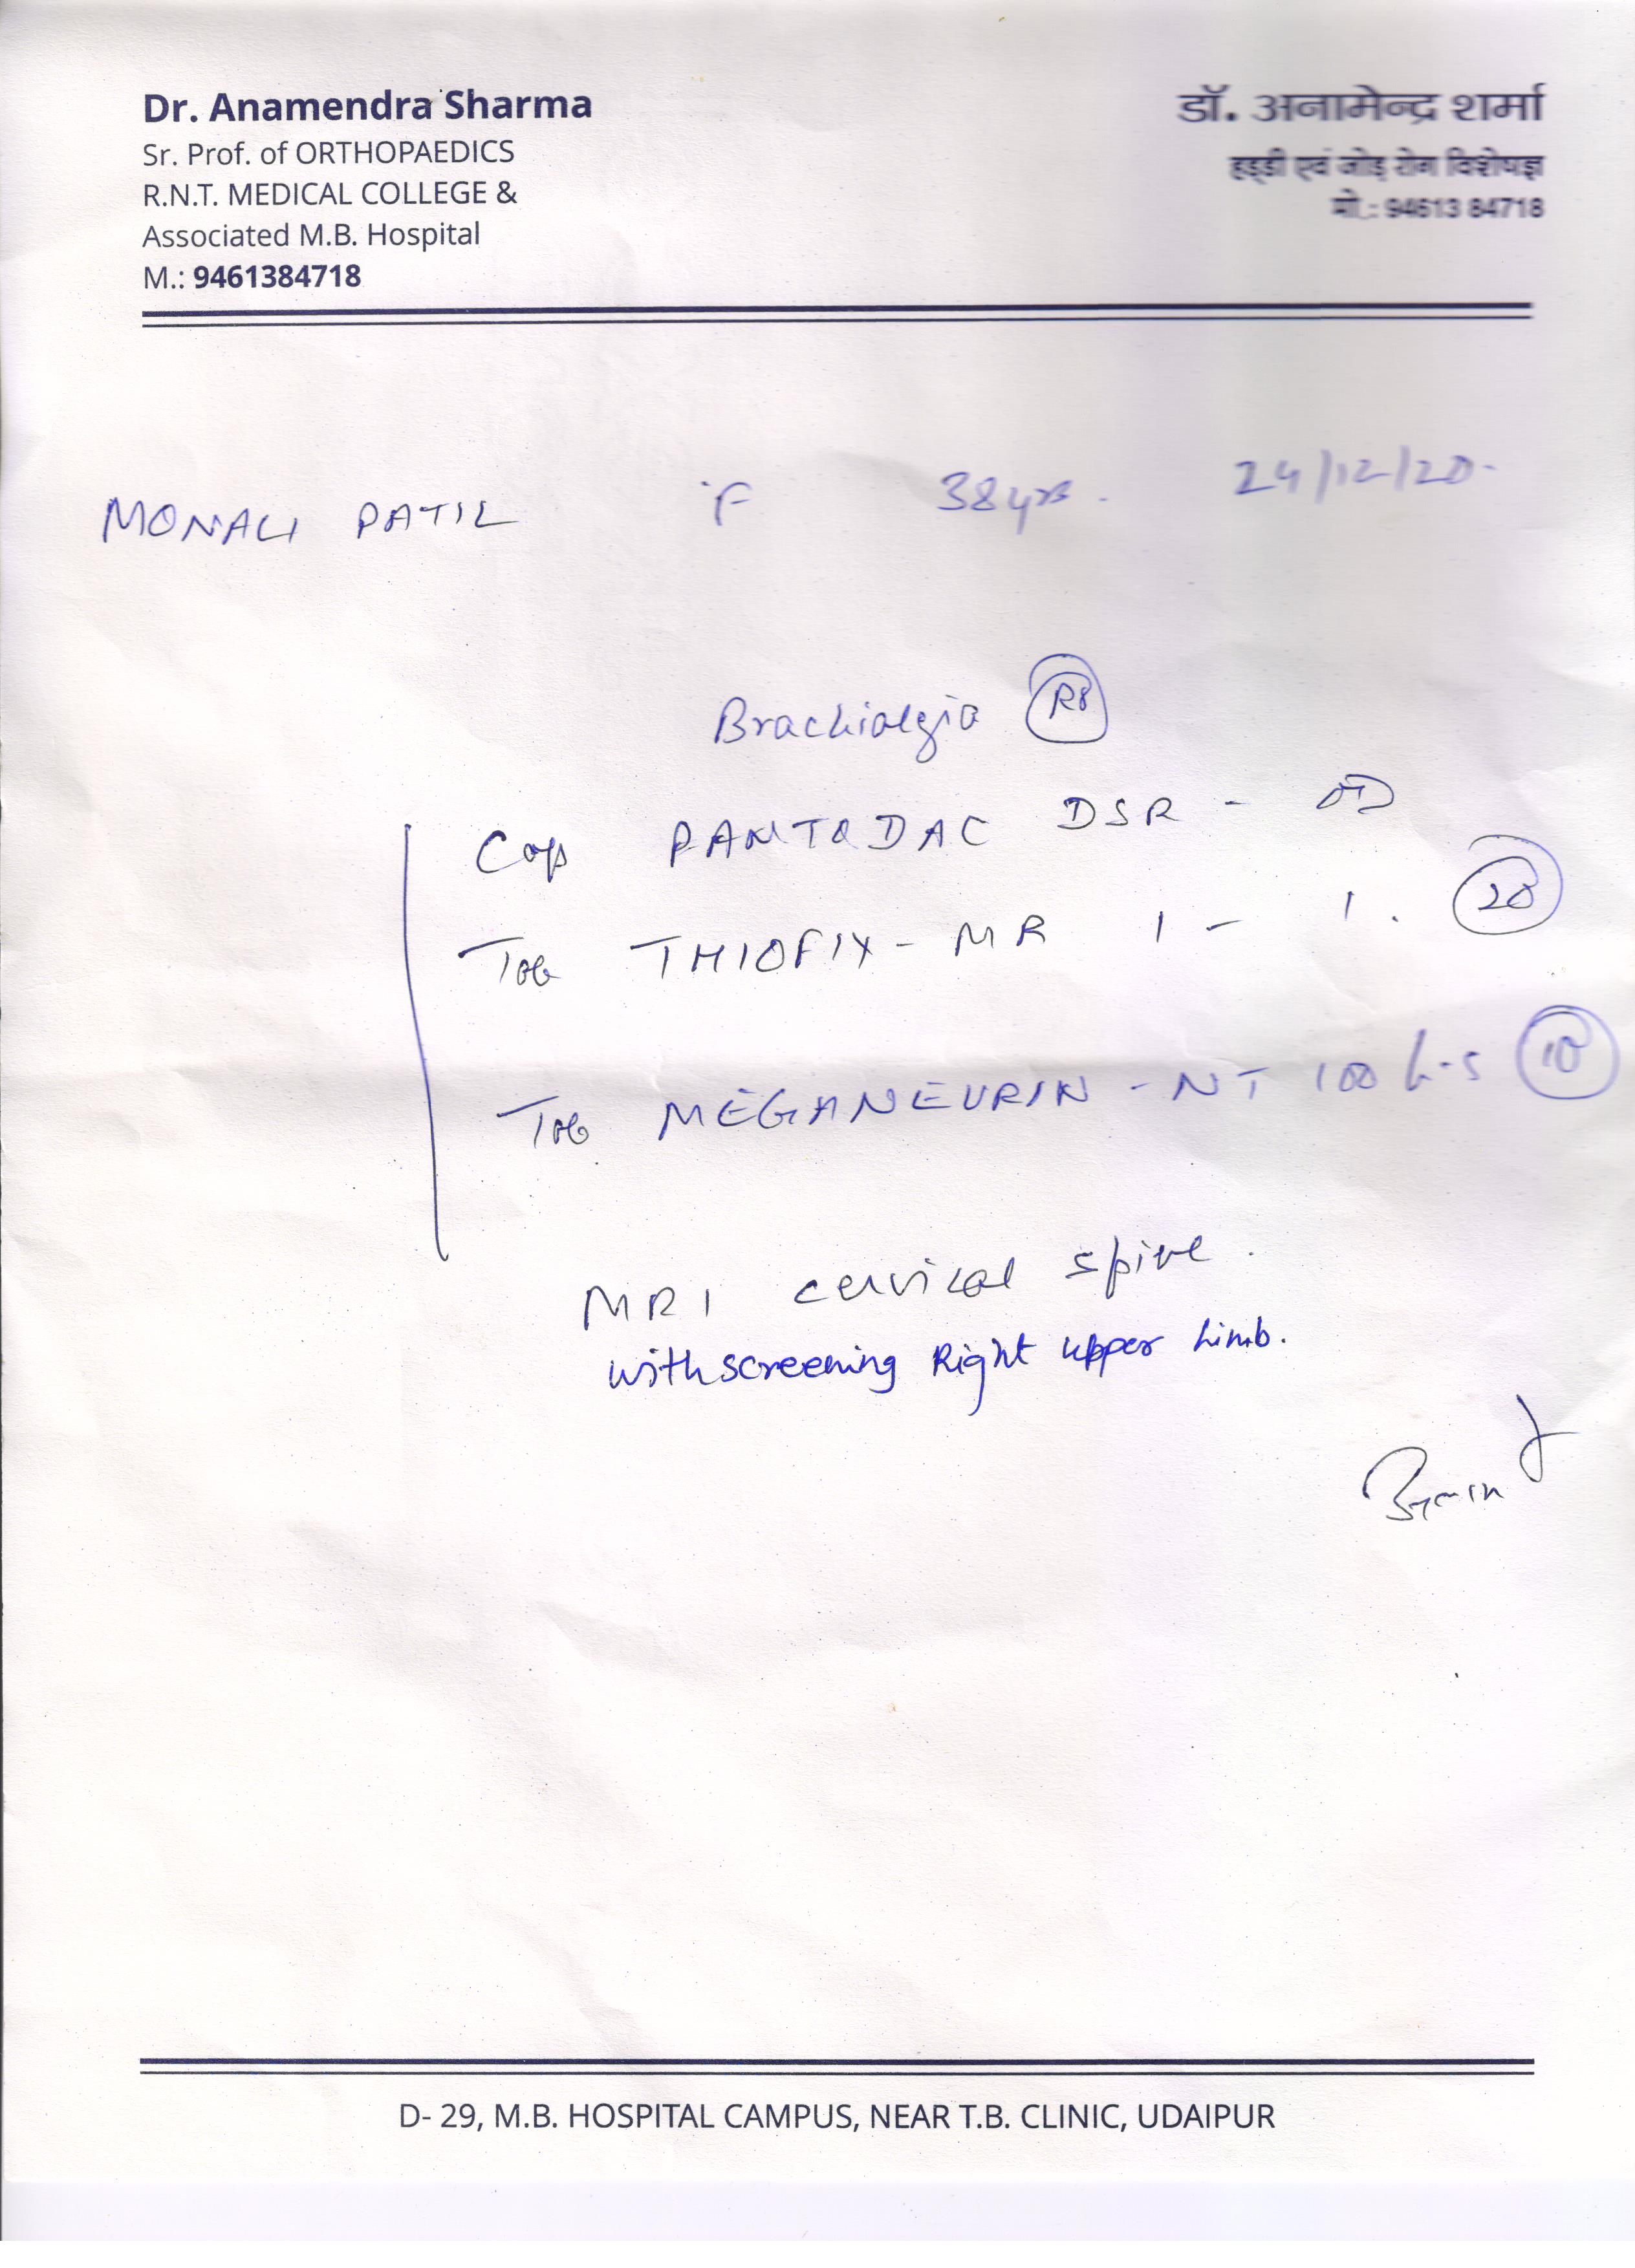 Dr. Anamendra Sharma
Sr. Prof. of ORTHOPAEDICS
R.N.T. MEDICAL COLLEGE &
Associated M.B. Hospital
M.: 9461384718
डॉ. अनामेन्द्र शर्मा
हड्डी एवं जोड़ रोग विशेषज्ञ
मो.: 94613 84718
MONALI PATIL F 38 yrs. 24/12/20.
Brachialgia
Cap PANTODAC DSR - OD
Tab THIOFIX - MR 1 - 1. 20
Tab MEGANEURIN - NT 100 h-s 10
MRI cervical spine.
with screening Right upper Limb.
D- 29, M.B. HOSPITAL CAMPUS, NEAR T.B. CLINIC, UDAIPUR